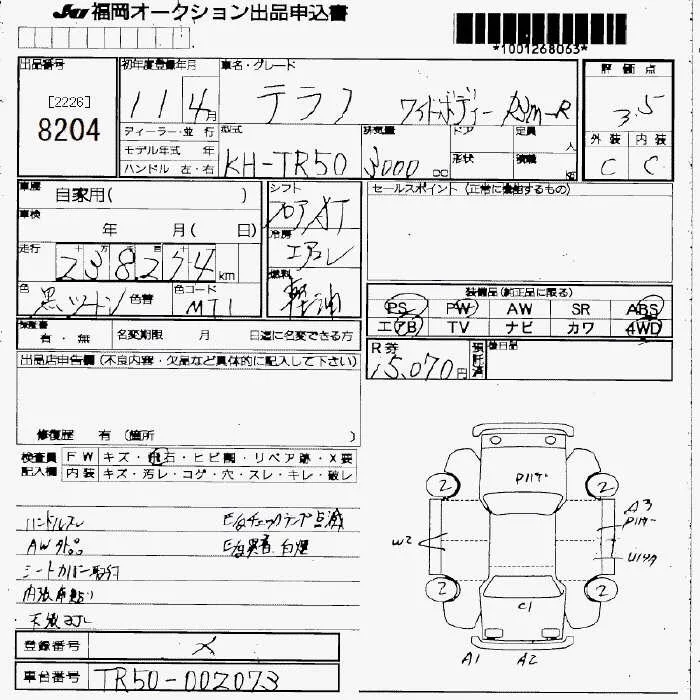 JU 福岡オークション出品申込書
*1001268063*
出品番号
[2226]
8204
初年度登録年月
11 4月
車名・グレード
テラノ ワイドボディー R3m-R
評価点
3.5
外装 内装
C C
ディーラー・並行
モデル年式 年
ハンドル 左・右
型式
KH-TR50
排気量
3000 cc
ドア
形状
定員
人
積載
車歴
自家用( )
車検
年 月( 日)
走行
十 万 千 百 十
238254 km
色
黒ツートン
色替
色コード
シフト
フロアAT
冷房
エアコン
燃料
軽油
セールスポイント (正常に機能するもの)
装備品(純正品に限る)
PS PW AW SR ABS
エアB TV ナビ カワ 4WD
保証書
有・無
名変期限 月 日迄に名変できる方
R券
15,070円
預託済
後日品
出品店申告欄 (不良内容・欠品など具体的に記入して下さい)
修復歴 有 (箇所 )
検査員記入欄
FW キズ・飛石・ヒビ割・リペア跡・X要
内装 キズ・汚レ・コゲ・穴・スレ・キレ・破レ
ハンドルスレ
E/gチェックランプ点滅
AW外品
E/g異音 白煙
シートカバー取付
P117ー
2 2
A3
P117ー
W2
U1キズ
2 2
C1
A1 A2
登録番号
メ
車台番号
TR50-002073